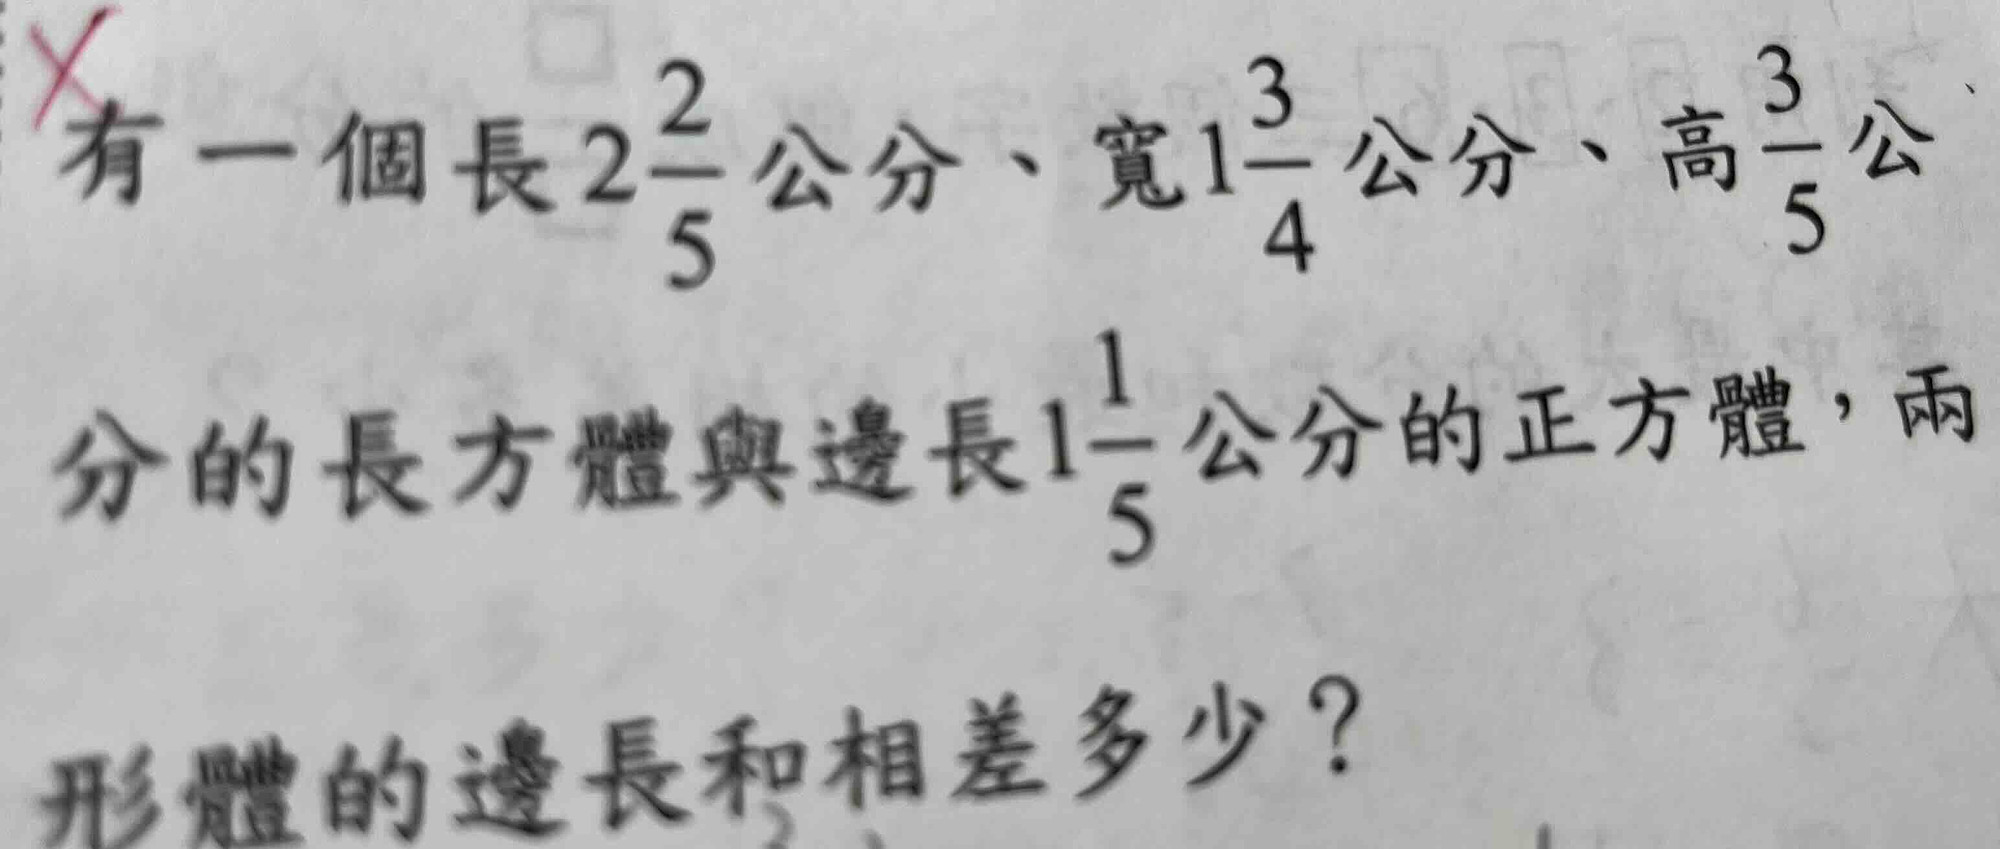 有一個長2 2/5 公分、寬1 3/4 公分、高 3/5 公
分的長方體與邊長1 1/5 公分的正方體，兩
形體的邊長和相差多少？